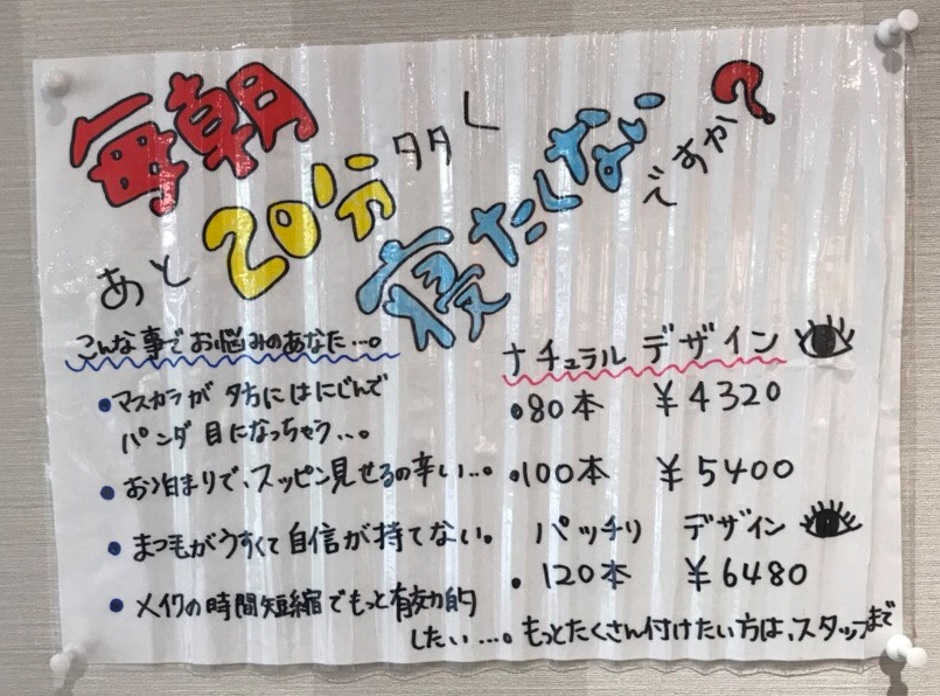 毎朝
あと20分多く
寝たくないですか?
こんな事でお悩みのあなた…。
•マスカラが夕方にはにじんで
パンダ目になっちゃう…。
•お泊まりで、スッピン見せるの辛い…。
•まつ毛がうすくて自信が持てない。
•メイクの時間短縮でもっと有効的
したい…。
ナチュラルデザイン
•80本 ¥4320
•100本 ¥5400
パッチリ デザイン
•120本 ¥6480
もっとたくさん付けたい方は、スタッフまで